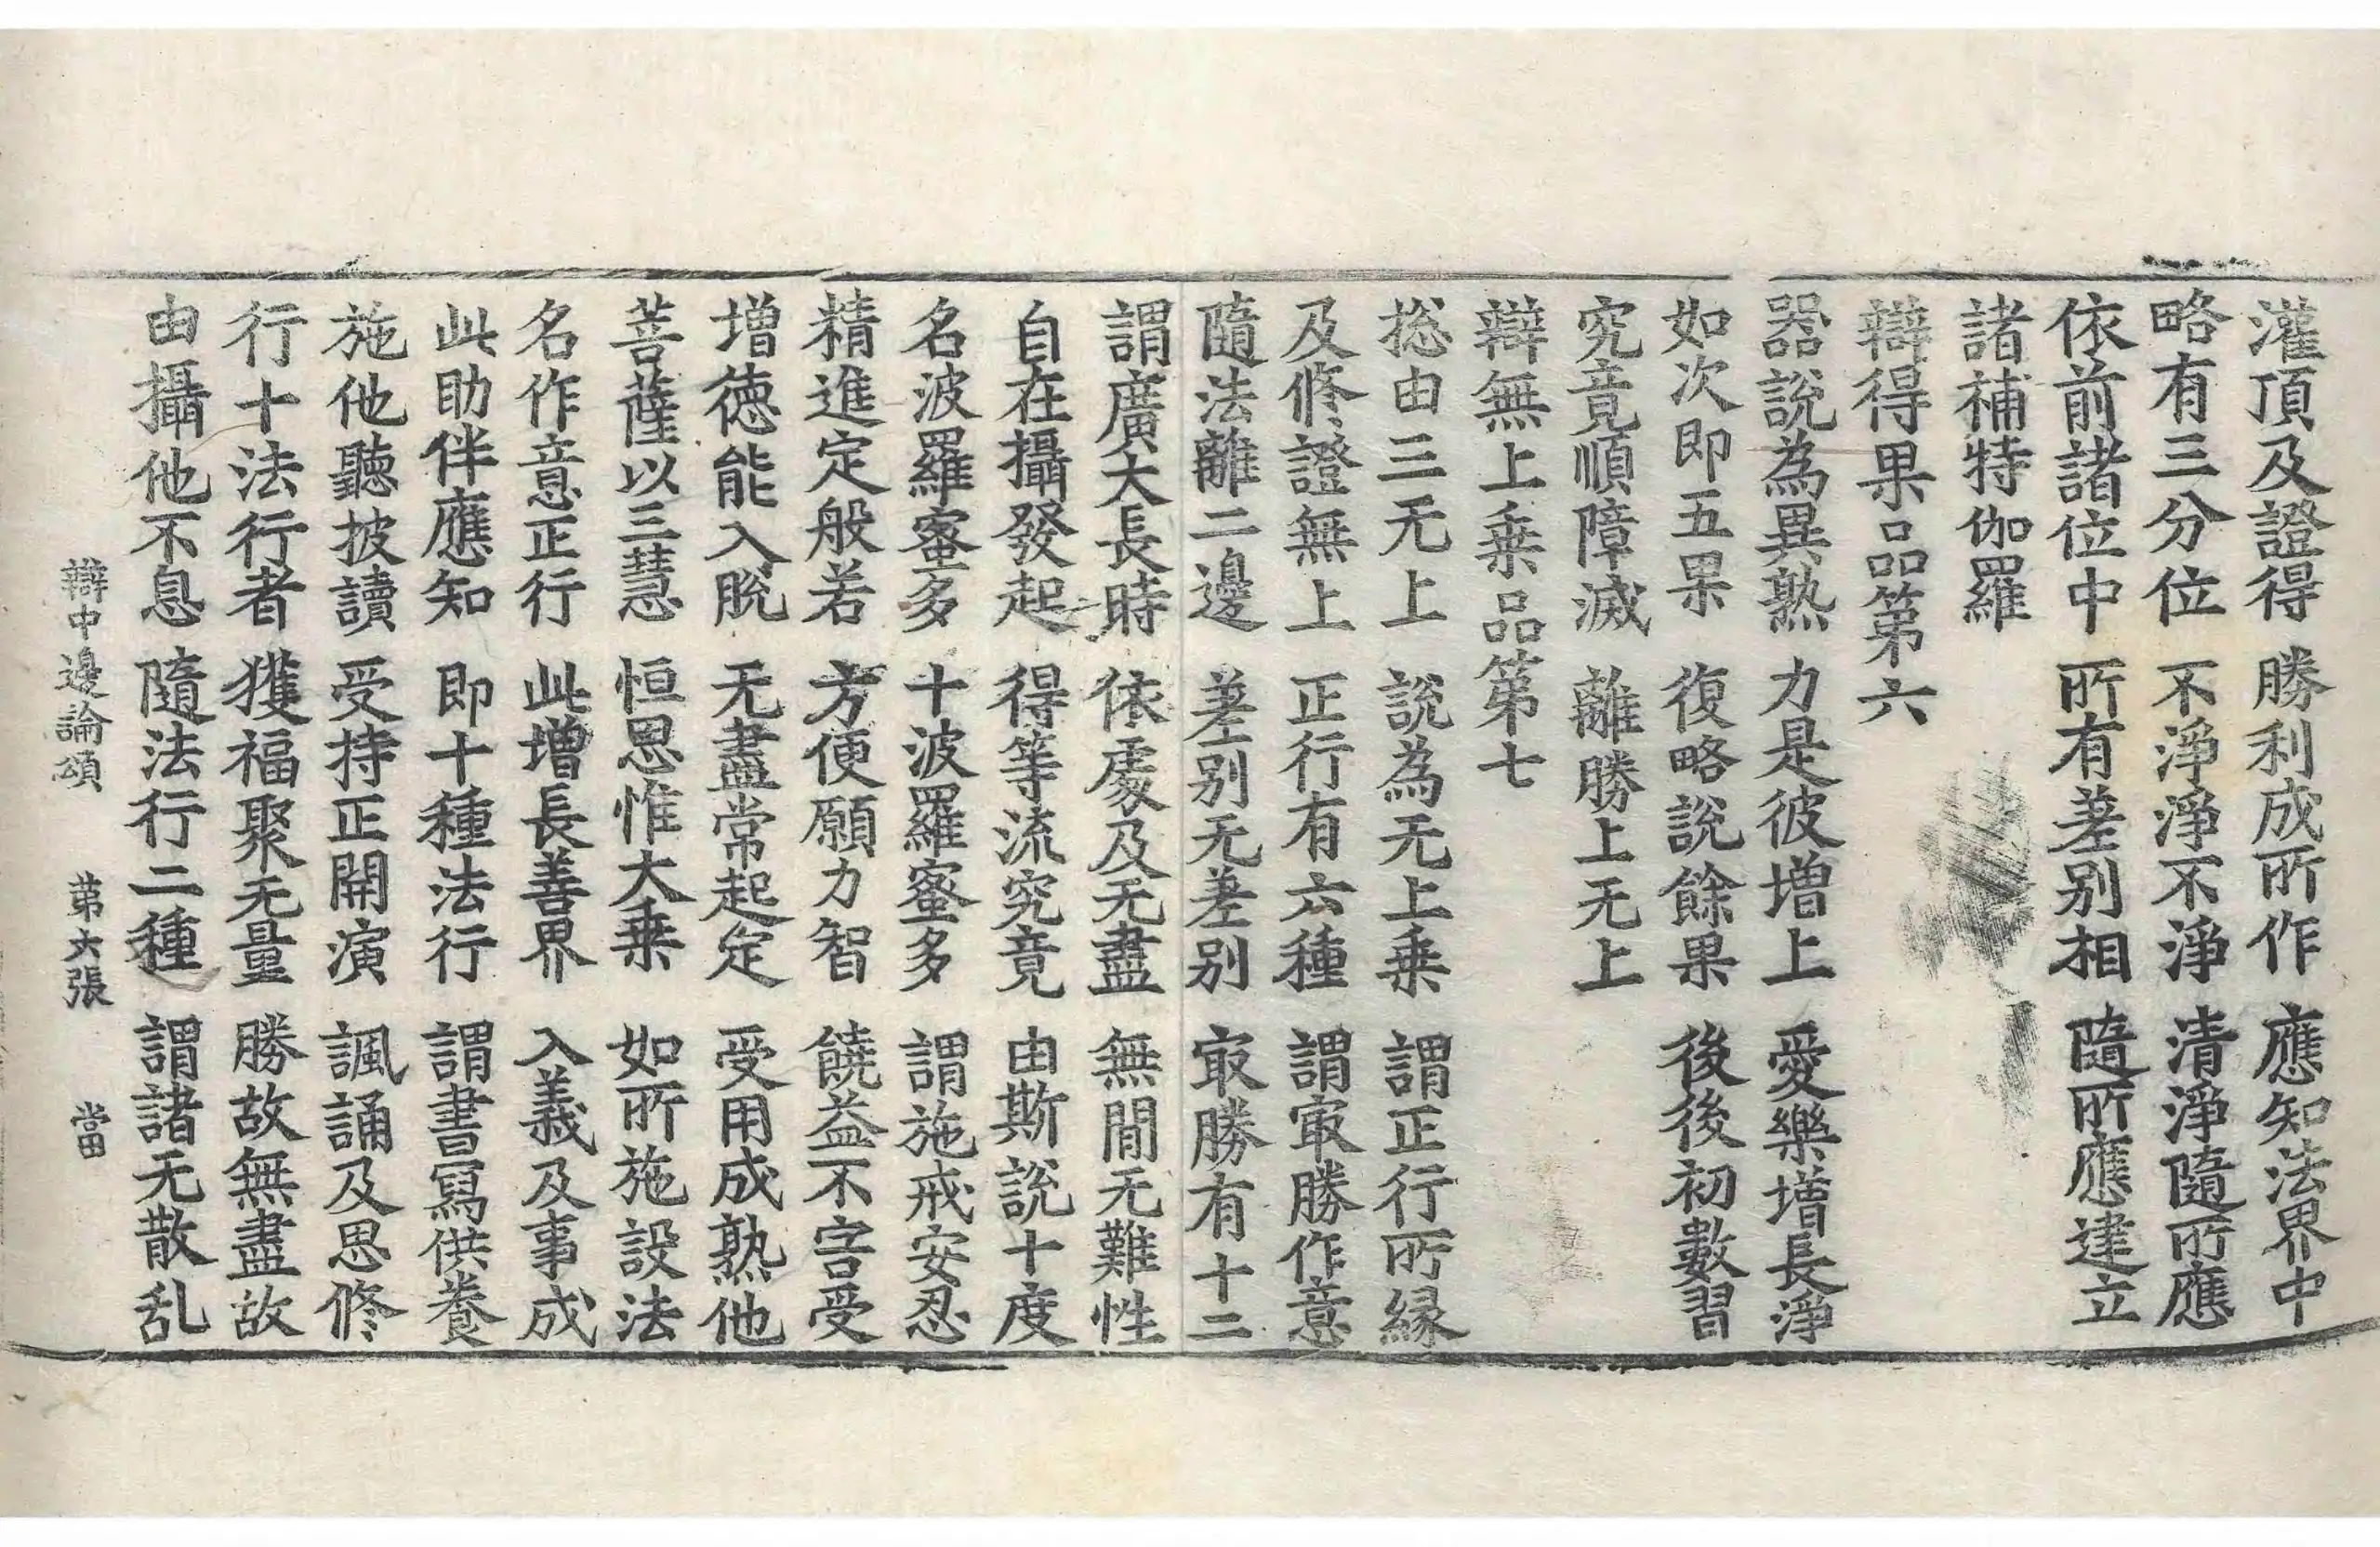 灌頂及證得 勝利成所作 應知法界中
略有三分位 不淨淨不淨 清淨隨所應
依前諸位中 所有差别相 隨所應建立
諸補特伽羅
辯得果品第六
器說為異熟 力是彼增上 愛樂增長淨
如次即五果 復略說餘果 後後初數習
究竟順障滅 離勝上无上
辯無上乗品第七
揔由三无上 說為无上乗 謂正行所縁
及修證無上 正行有六種 謂㝡勝作意
隨法離二邊 差别无差别 㝡勝有十二
謂廣大長時 依處及无盡 無間无難性
自在攝發起 得等流究竟 由斯說十度
名波羅蜜多 十波羅蜜多 謂施戒安忍
精進定般若 方便願力智 饒益不害受
增徳能入脫 无盡常起定 受用成熟他
菩薩以三慧 恒思惟大乗 如所施設法
名作意正行 此增長善界 入義及事成
此助伴應知 即十種法行 謂書寫供養
施他聽披讀 受持正開演 諷誦及思修
行十法行者 獲福聚无量 勝故無盡故
由攝他不息 隨法行二種 謂諸无散乱
辯中邊論頌 第六張 當